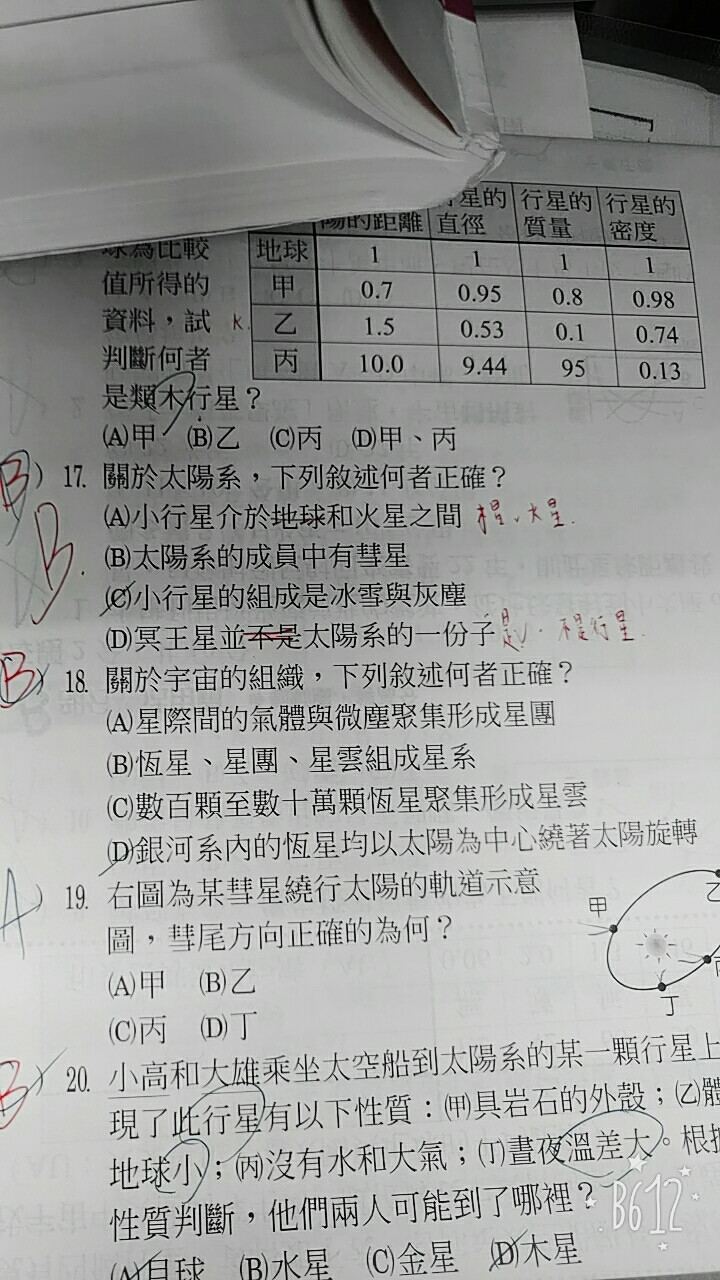 陽的距離 星的直徑 行星的質量 行星的密度
球為比較 地球 1 1 1 1
值所得的 甲 0.7 0.95 0.8 0.98
資料，試 K 乙 1.5 0.53 0.1 0.74
判斷何者 丙 10.0 9.44 95 0.13
是類木行星？
(A)甲 (B)乙 (C)丙 (D)甲、丙
B) 17. 關於太陽系，下列敘述何者正確？
(A)小行星介於地球和火星之間 木星、火星
B
(B)太陽系的成員中有彗星
(C)小行星的組成是冰雪與灰塵
(D)冥王星並不是太陽系的一份子 是
B) 18. 關於宇宙的組織，下列敘述何者正確？
(A)星際間的氣體與微塵聚集形成星團
(B)恆星、星團、星雲組成星系
(C)數百顆至數十萬顆恆星聚集形成星雲
(D)銀河系內的恆星均以太陽為中心繞著太陽旋轉
A) 19. 右圖為某彗星繞行太陽的軌道示意
圖，彗尾方向正確的為何？
(A)甲 (B)乙
(C)丙 (D)丁
甲 乙
丁
B) 20. 小高和大雄乘坐太空船到太陽系的某一顆行星上
現了此行星有以下性質：(甲)具岩石的外殼；(乙)體
地球小；(丙)沒有水和大氣；(丁)晝夜溫差大。根
性質判斷，他們兩人可能到了哪裡？
(A)月球 (B)水星 (C)金星 (D)木星
B612